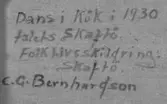 Dans i Kök i 1930
talets Skaftö.
Folklivsskildring.
Skaftö.
C.G. Bernhardson